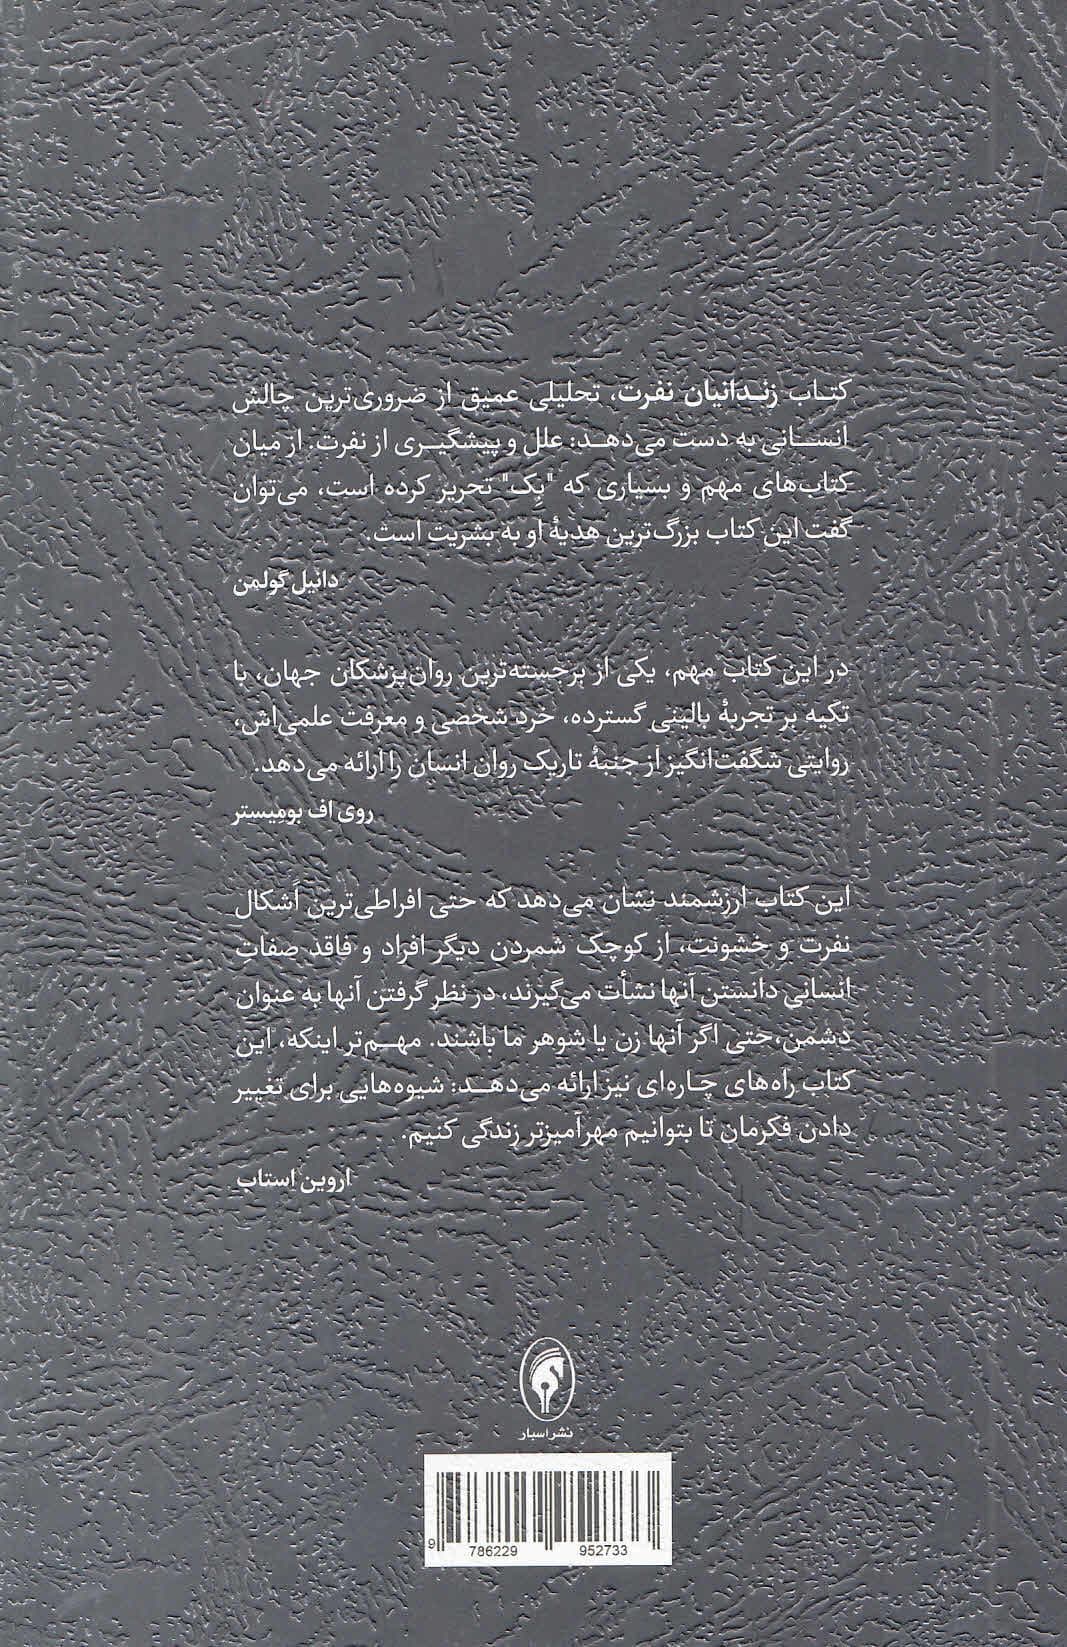 کتاب زندانیان نفرت، تحلیلی عمیق از ضروری‌ترین چالش
انسانی به دست می‌دهد: علل و پیشگیری از نفرت. از میان
کتاب‌های مهم و بسیاری که "بِک" تحریر کرده است، می‌توان
گفت این کتاب بزرگ‌ترین هدیهٔ او به بشریت است.
دانیل گولمن
در این کتاب مهم، یکی از برجسته‌ترین روان‌پزشکان جهان، با
تکیه بر تجربهٔ بالینی گسترده، خرد شخصی و معرفت علمی‌اش،
روایتی شگفت‌انگیز از جنبهٔ تاریک روان انسان را ارائه می‌دهد.
روی اف بومِیستر
این کتاب ارزشمند نشان می‌دهد که حتی افراطی‌ترین اَشکال
نفرت و خشونت، از کوچک شمردن دیگر افراد و فاقد صفات
انسانی دانستن آنها نشأت می‌گیرند، در نظر گرفتن آنها به عنوان
دشمن،حتی اگر آنها زن یا شوهر ما باشند. مهم‌تر اینکه، این
کتاب راه‌های چاره‌ای نیز ارائه می‌دهد: شیوه‌هایی برای تغییر
دادن فکرمان تا بتوانیم مهرآمیزتر زندگی کنیم.
اروین استاب
نشر اسبار
9 786229 952733